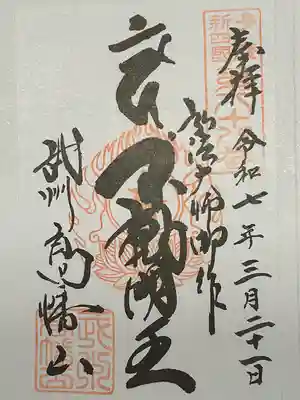 奉拝
令和七年三月二十一日
弘法大師御作
不動明王
武州
高幡山